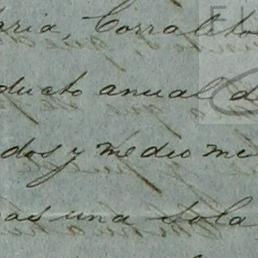 aria, Corralito
ducto anual d
dos y medio mi
as una sola